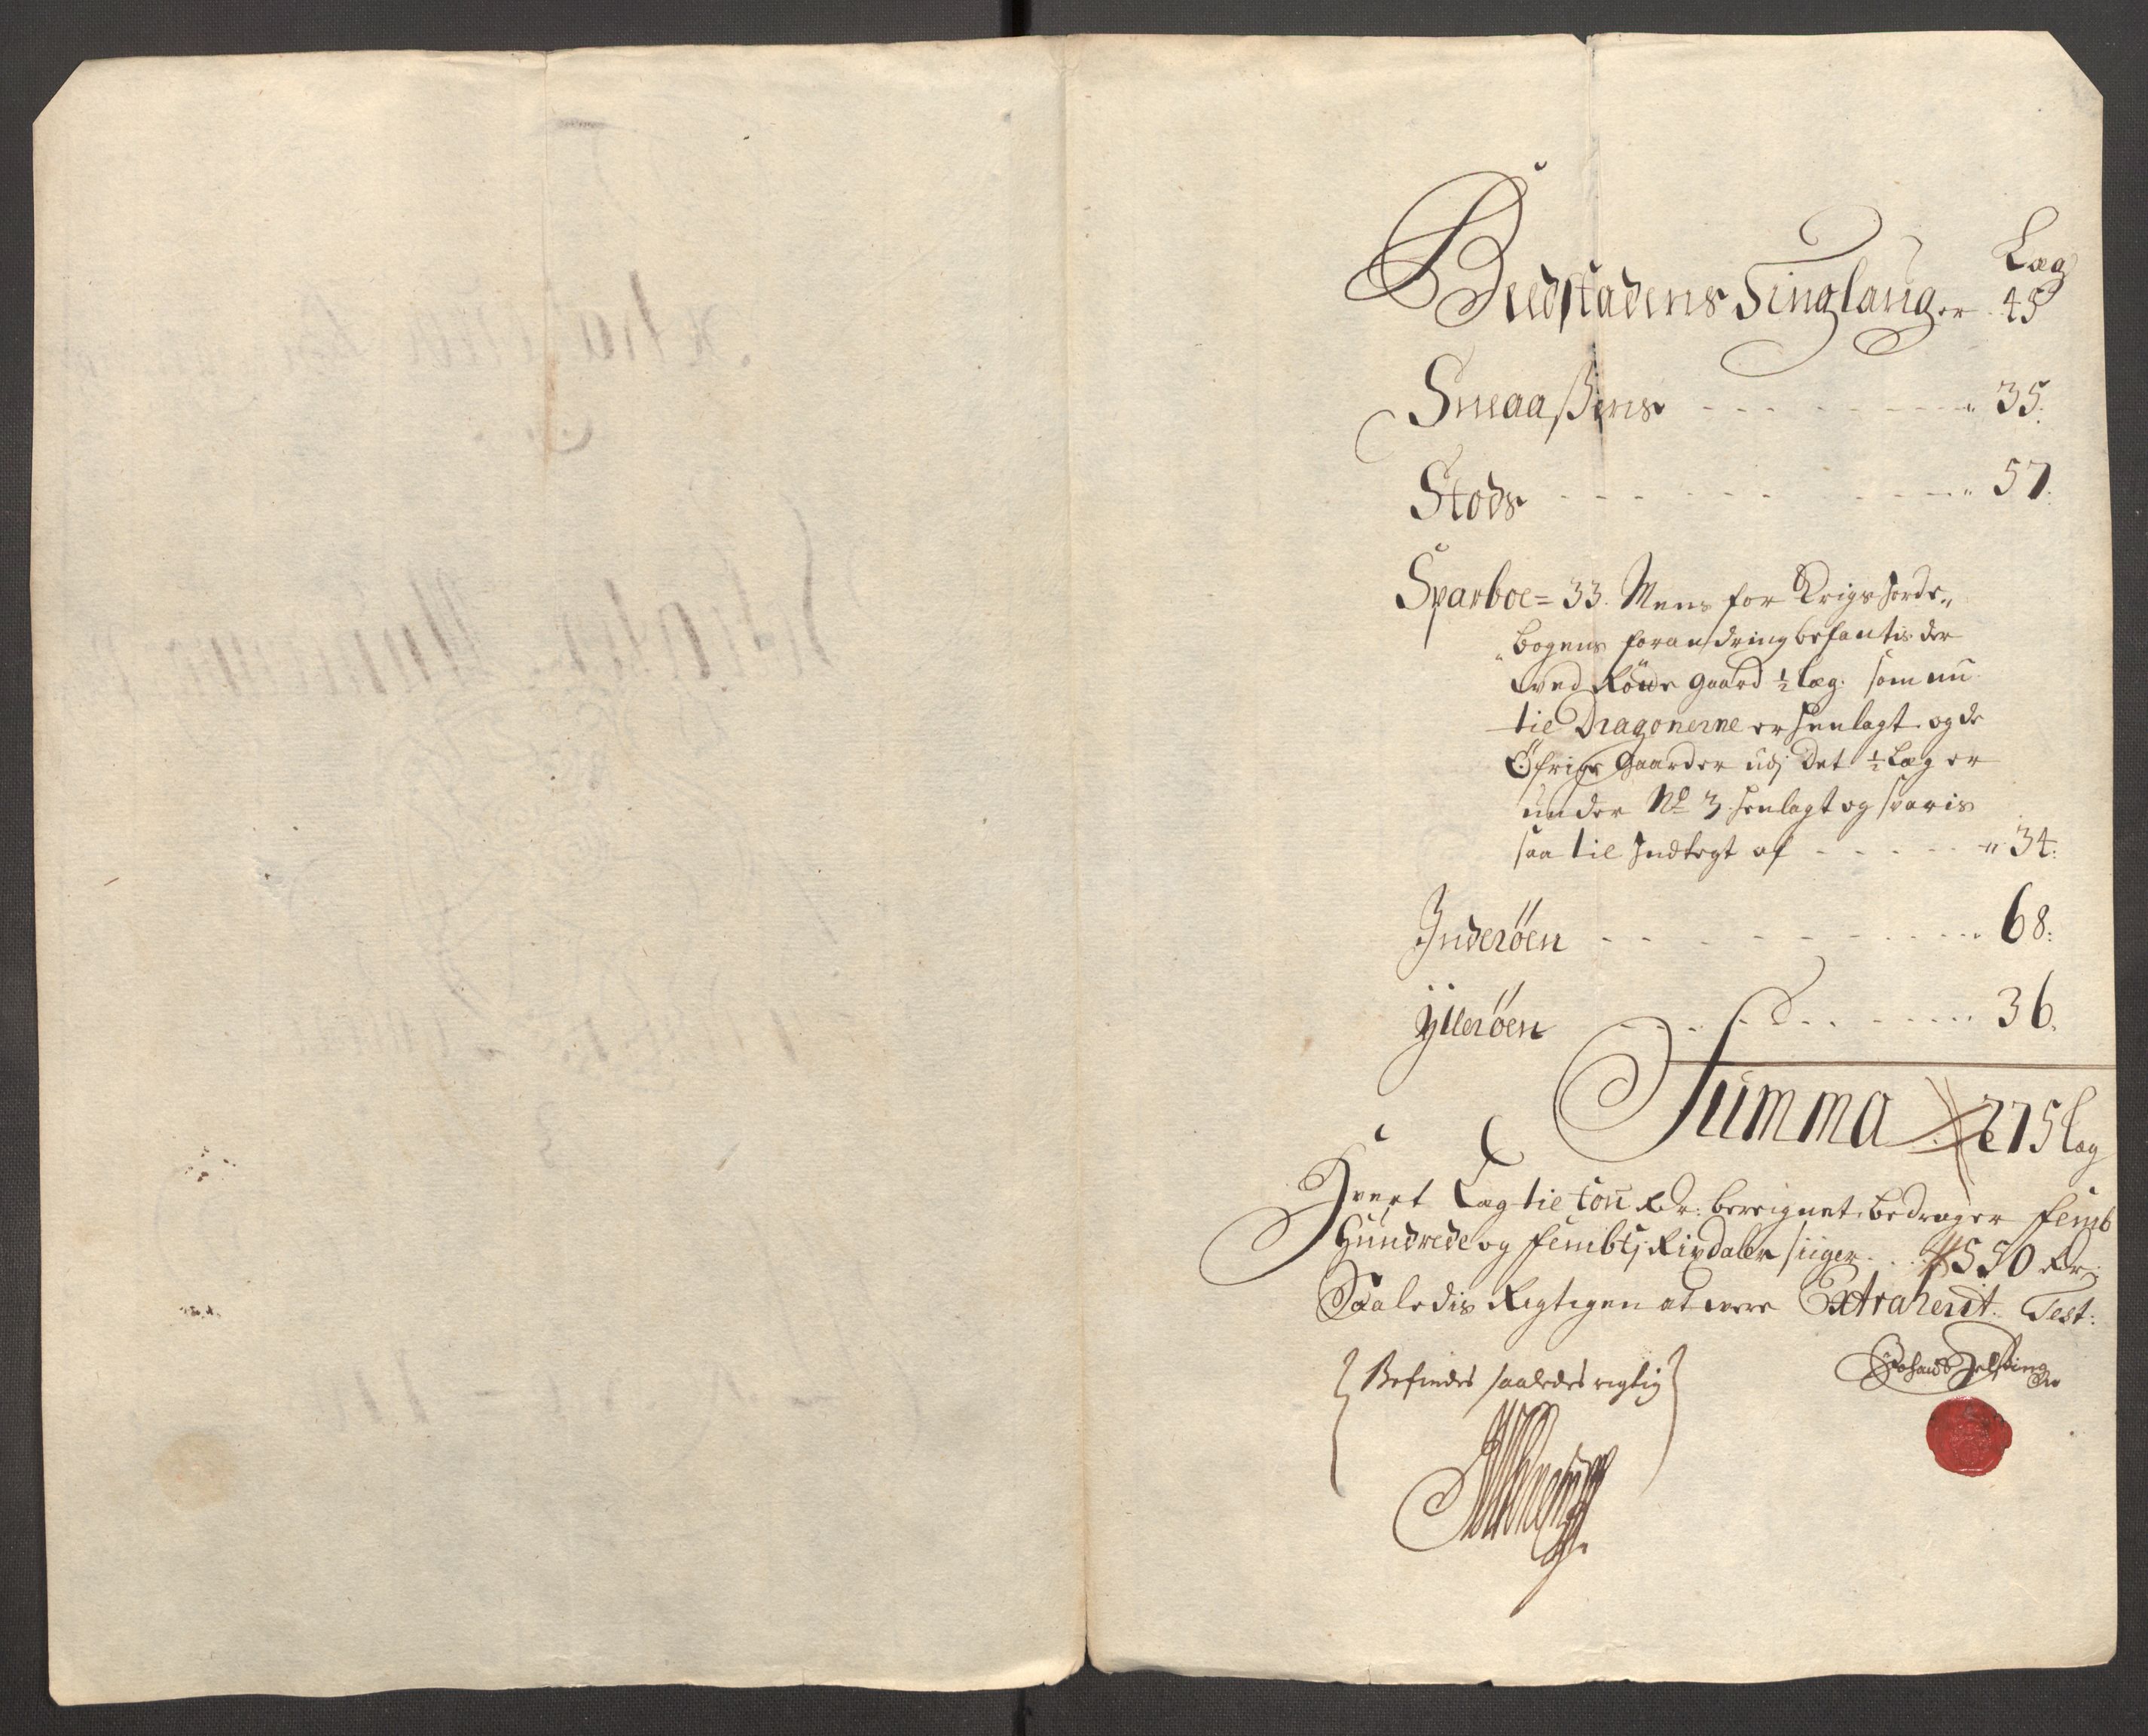 Læg
Bedstadens Tinglaug er 45
Sneaaßens - - - - - - - 35.
Stods - - - - - - - 57.
Sparboe = 33. Mens for Krigs Jorde„
„bogens forandring befantis der
ved Röws gaard ½ læg. som nu
til Dragonerne er henlagt. og de
Öfrige Gaarder udj det ½ Læg er
under No 3 henlagt og svaris
saa til Indtegt af - - - - - 34:
Inderöen - - - - - - - 68:
Ytteröen - - - - - - - 36.
Summa 275 læg
Hvert Læg til tou Rdr: bereignet, bedrager femb
Hundrede og fembtj Rixdaler siiger . . . 550 Rdr:
Saaledis Rigtigen at være Extraherit. Test:
Befindes saaledes rigtig